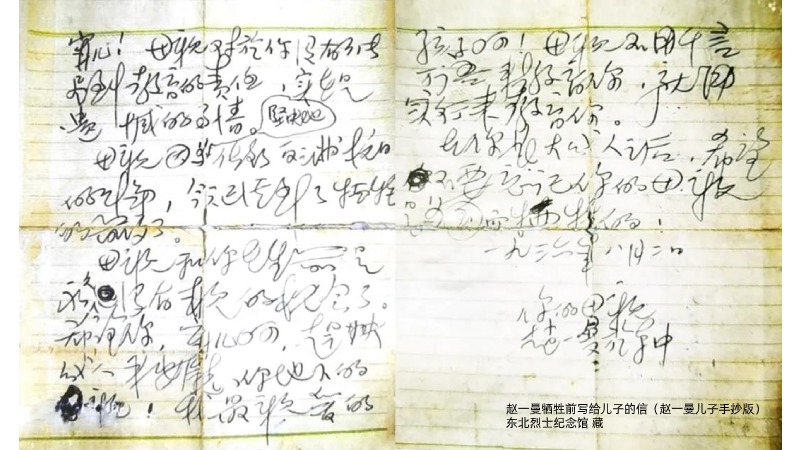 宁儿！母親对於你没有能
尽到教育的责任，实在是
遗憾的事情。
坚决地
母親因 做了反满抗日
的斗争，今天已经到了牺牲
的前夕了。
母親和你在生前是
永久没有再見的机会了。
希望你，宁儿啊，赶快
成人，来安慰你地下的
母親！我最親爱的
孩子啊！母親不用千言
万语来教育你，就用
实行来教育你。
在你长大成人之后，希望
不要忘记你的母親
是为国而牺牲的！
一九三六年八月二日
你的母親
赵一曼於车中
赵一曼牺牲前写给儿子的信（赵一曼儿子手抄版）
东北烈士纪念馆 藏